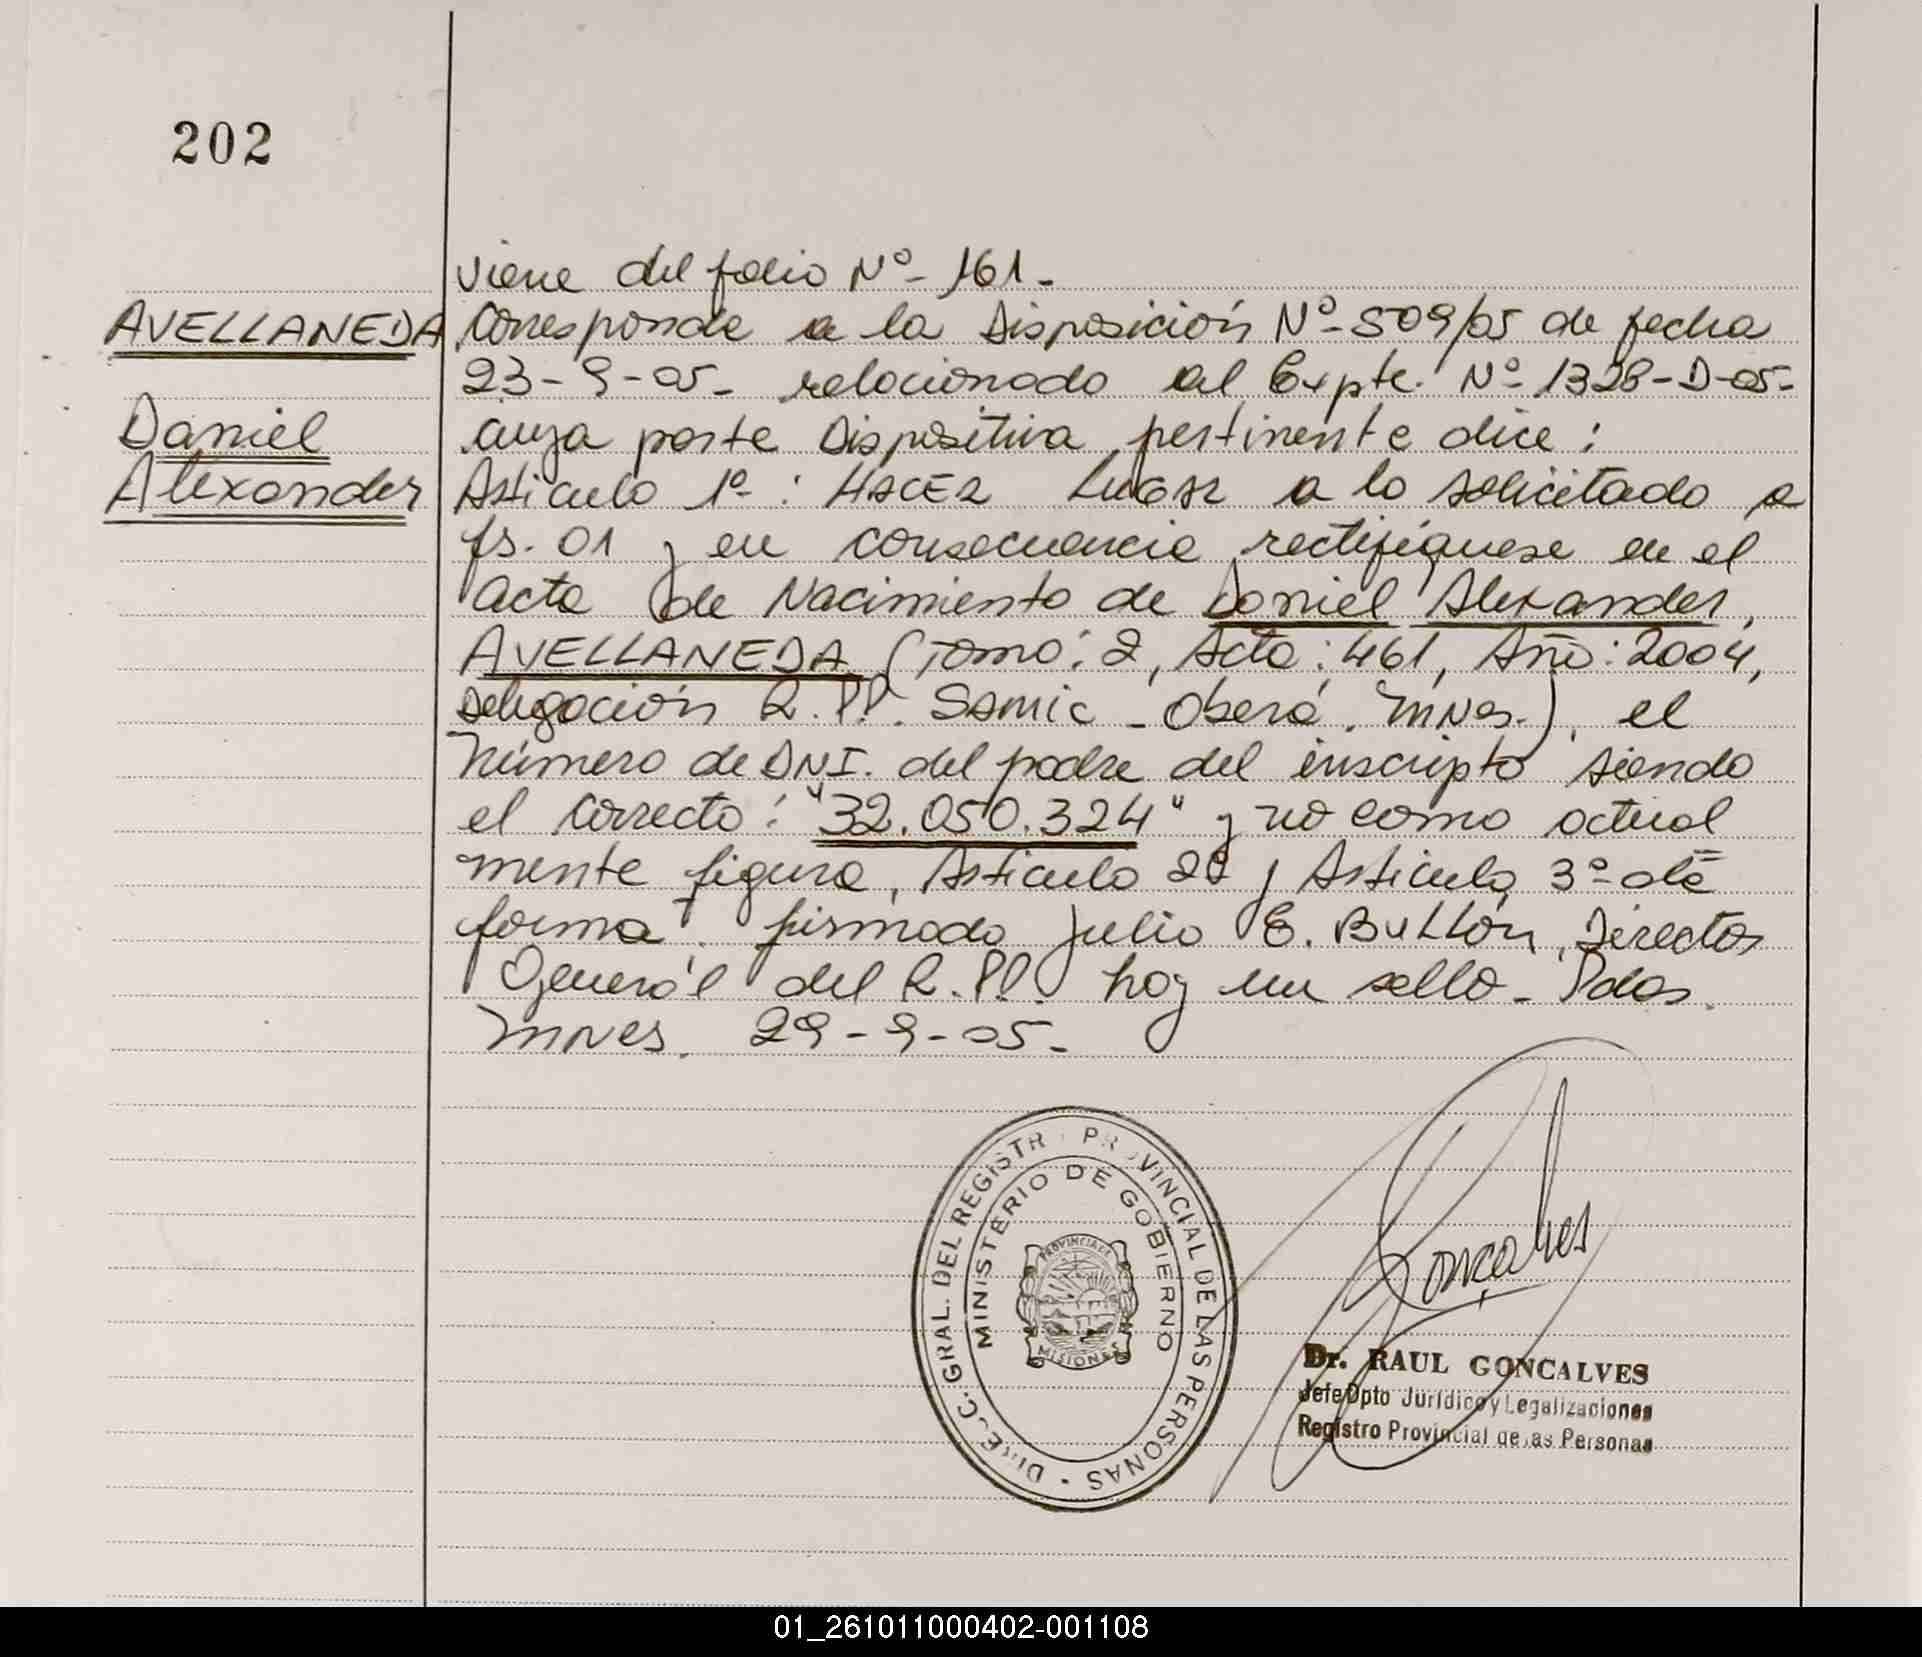 202
viene del folio Nº 161.
AVELLANEDA
Daniel
Alexander
Corresponde a la Disposición Nº 509/05 de fecha
23-9-05- relacionado al Expte. Nº 1328-D-05-
cuya parte Dispositiva pertinente dice:
Articulo 1º: HACER LUGAR a lo solicitado a
fs. 01 y en consecuencia rectifíquese en el
acta de Nacimiento de Daniel Alexander,
AVELLANEDA (Tomo: 2, Acta: 461, Año: 2004,
Delegación R.PP. SAMIC - Oberá, Mnes.), el
Número de DNI. del padre del inscripto siendo
el correcto: "32.050.324" y no como actual
mente figura, Articulo 2º y Articulo 3º de
forma. firmado Julio E. Bullón, Director
General del R.PP. hay un sello - Pdas.
Mnes. 29-9-05-
DIREC. GRAL. DEL REGISTR PROVINCIAL DE LAS PERSONAS -
MINISTERIO DE GOBIERNO
PROVINCIA DE
MISIONES
Goncalves
Dr. RAUL GONCALVES
Jefe Dpto Jurídico y Legalizaciones
Registro Provincial de las Personas
01_261011000402-001108